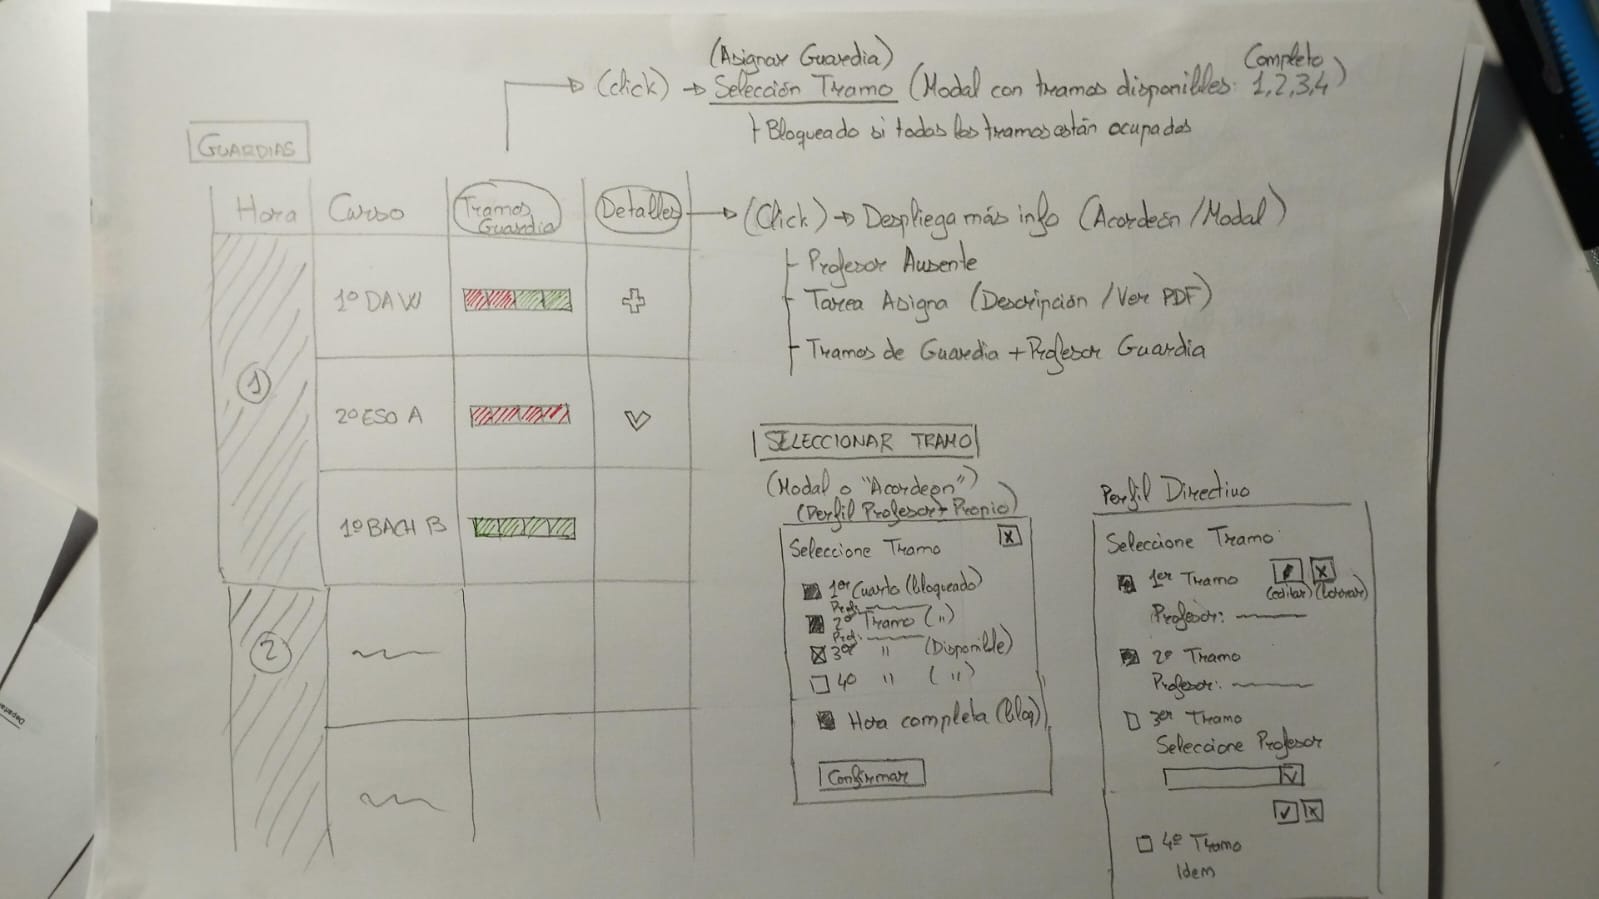 (Asignar Guardia)
Completo
(click) → Selección Tramo (Modal con tramos disponibles: 1,2,3,4)
Bloqueado si todos los tramos están ocupados
GUARDIAS
Hora
Curso
Tramos Guardia
Detalles → (Click) → Despliega más info (Acordeón/Modal)
Profesor Ausente
Tarea Asigna (Descripción / Ver PDF)
Tramos de Guardia + Profesor Guardia
1
1º DAW
2º ESO A
1º BACH B
2
SELECCIONAR TRAMO
(Modal o "Acordeon")
(Perfil Profesor + Propio)
Seleccione Tramo
X
1er Cuarto (bloqueado)
Prof:
2º Tramo (")
Prof:
3er " (Disponible)
4º " (")
Hora completa (bloq)
Confirmar
Perfil Directivo
Seleccione Tramo
1er Tramo
X
(editar) (borrar)
Profesor:
2º Tramo
Profesor:
3er Tramo
Seleccione Profesor
4º Tramo
Idem
Departa